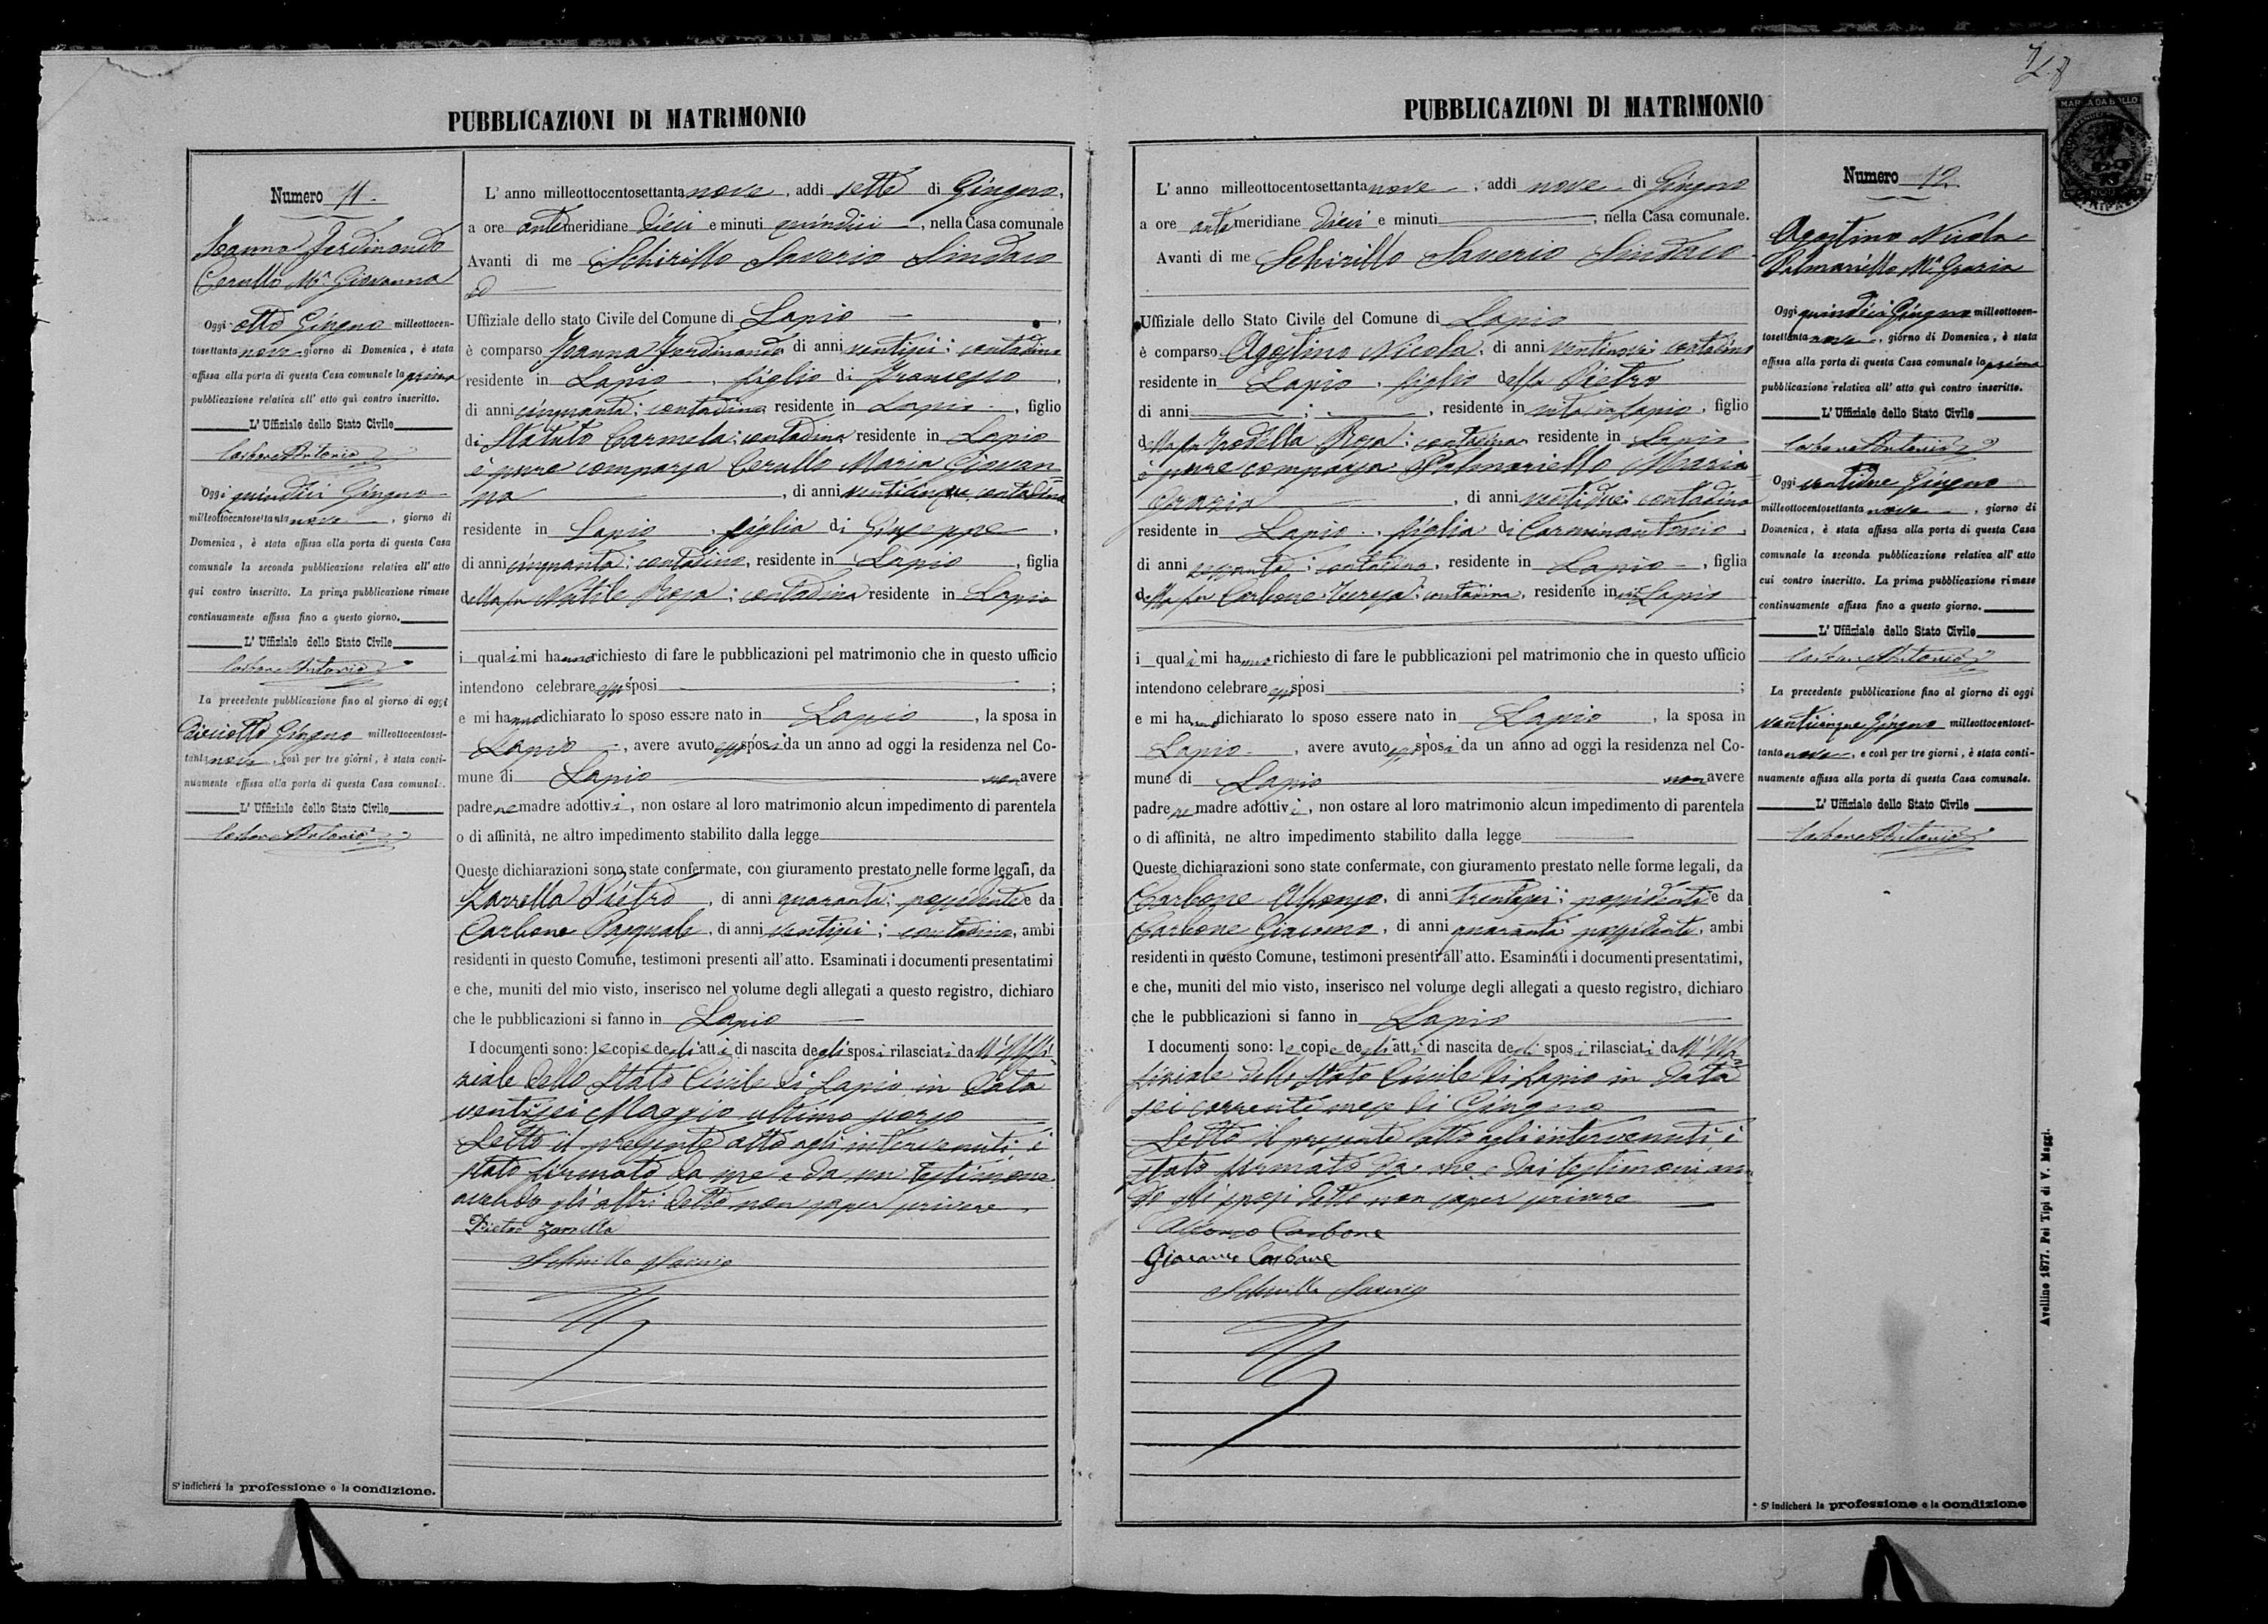 PUBBLICAZIONI DI MATRIMONIO
Numero 11.
Ferdinando
Cerullo Ma Giovanna
Oggi otto Giugno milleottocen-
tosettanta nove giorno di Domenica, è stata
affissa alla porta di questa Casa comunale la prima
pubblicazione relativa all' atto quì contro inscritto.
L' Uffiziale dello Stato Civile
Carbone Antonio
Oggi quindici Giugno
milleottocentosettanta nove, giorno di
Domenica, è stata affissa alla porta di questa Casa
comunale la seconda pubblicazione relativa all' atto
qui contro inscritto. La prima pubblicazione rimase
continuamente affissa fino a questo giorno.
L' Uffiziale dello Stato Civile
Carbone Antonio
La precedente pubblicazione fino al giorno di oggi
dieciotto Giugno milleottocentoset-
tanta nove, così per tre giorni, è stata conti-
nuamente affissa alla porta di questa Casa comunale.
L' Uffiziale dello Stato Civile
Carbone Antonio
S' indicherá la professione o la condizione.
L' anno milleottocentosettanta nove, addi sette di Giugno,
a ore antemeridiane dieci e minuti quindici, nella Casa comunale
Avanti di me Schirillo Saverio Sindaco
ed
Uffiziale dello stato Civile del Comune di Lapio
è comparso Ferdinando di anni ventisei; contadino
residente in Lapio, figlio di Francesco,
di anni cinquanta; contadino residente in Lapio, figlio
di Statuto Carmela; contadina residente in Lapio
è pure comparsa Cerullo Maria Giovan=
na, di anni venticinque contadina
residente in Lapio, figlia di Giuseppe,
di anni cinquanta; contadino, residente in Lapio, figlia
della fu Rosa; contadina residente in Lapio
i quali mi hanno richiesto di fare le pubblicazioni pel matrimonio che in questo ufficio
intendono celebrare essi sposi;
e mi hanno dichiarato lo sposo essere nato in Lapio, la sposa in
Lapio, avere avuto essi sposi da un anno ad oggi la residenza nel Co-
mune di Lapio non avere
padre ne madre adottivi, non ostare al loro matrimonio alcun impedimento di parentela
o di affinità, ne altro impedimento stabilito dalla legge
Queste dichiarazioni sono state confermate, con giuramento prestato nelle forme legali, da
Zarrella Pietro, di anni quaranta; possidente e da
Carbone Pasquale, di anni ventisei; contadino, ambi
residenti in questo Comune, testimoni presenti all'atto. Esaminati i documenti presentatimi
e che, muniti del mio visto, inserisco nel volume degli allegati a questo registro, dichiaro
che le pubblicazioni si fanno in Lapio
I documenti sono: le copie degli atti di nascita degli sposi rilasciati dall'Uffi-
ziale dello Stato Civile di Lapio in data
ventisei Maggio ultimo scorso
Letto il presente atto agli intervenuti è
stato firmato da me e da un testimone
avendo gli altri detto non saper scrivere.
Pietro Zarrella
Schirillo Saverio
PUBBLICAZIONI DI MATRIMONIO
L' anno milleottocentosettanta nove, addi nove di Giugno
a ore antemeridiane dieci e minuti, nella Casa comunale.
Avanti di me Schirillo Saverio Sindaco
Uffiziale dello Stato Civile del Comune di Lapio
è comparso Agostino Nicola, di anni ventinove; contadino
residente in Lapio, figlio della Pietro
di anni ; , residente in Lapio, figlio
della fu Rosa; contadina residente in Lapio
è pure comparsa Palmariello Maria
Grazia, di anni ventidue; contadina
residente in Lapio, figlia di Carminantonio,
di anni sessanta; contadino, residente in Lapio, figlia
della fu Carbone Teresa; contadina, residente in Lapio
i quali mi hanno richiesto di fare le pubblicazioni pel matrimonio che in questo ufficio
intendono celebrare essi sposi;
e mi hanno dichiarato lo sposo essere nato in Lapio, la sposa in
Lapio, avere avuto essi sposi da un anno ad oggi la residenza nel Co-
mune di Lapio non avere
padre ne madre adottivi, non ostare al loro matrimonio alcun impedimento di parentela
o di affinità, ne altro impedimento stabilito dalla legge
Queste dichiarazioni sono state confermate, con giuramento prestato nelle forme legali, da
Carbone Alfonso, di anni trentasei; possidente e da
Carbone Giacomo, di anni quaranta possidente, ambi
residenti in questo Comune, testimoni presenti all'atto. Esaminati i documenti presentatimi,
e che, muniti del mio visto, inserisco nel volume degli allegati a questo registro, dichiaro
che le pubblicazioni si fanno in Lapio
I documenti sono: le copie degli atti di nascita degli sposi rilasciati dall'Uf-
fiziale dello Stato Civile di Lapio in data
sei corrente mese di Giugno
Letto il presente atto agli intervenuti è
stato firmato da me e dai testimoni
gli sposi detto non saper scrivere
Alfonso Carbone
Giacomo Carbone
Schirillo Saverio
Numero 12
Agostino Nicola
Palmariello Ma Grazia
Oggi quindici Giugno milleottocen-
tosettanta nove, giorno di Domenica, è stata
affissa alla porta di questa Casa comunale la prima
pubblicazione relativa all' atto quì contro inscritto.
L' Uffiziale dello Stato Civile
Carbone Antonio
Oggi ventidue Giugno
milleottocentosettanta nove, giorno di
Domenica, è stata affissa alla porta di questa Casa
comunale la seconda pubblicazione relativa all' atto
cui contro inscritto. La prima pubblicazione rimase
continuamente affissa fino a questo giorno.
L' Uffiziale dello Stato Civile
Carbone Antonio
La precedente pubblicazione fino al giorno di oggi
venticinque Giugno milleottocentoset-
tanta nove, e così per tre giorni, è stata conti-
nuamente affissa alla porta di questa Casa comunale.
L' Uffiziale dello Stato Civile
Carbone Antonio
* S' indicherá la professione o la condizione
MARCA DA BOLLO
Avellino 1877. Pei Tipi di V. Maggi.